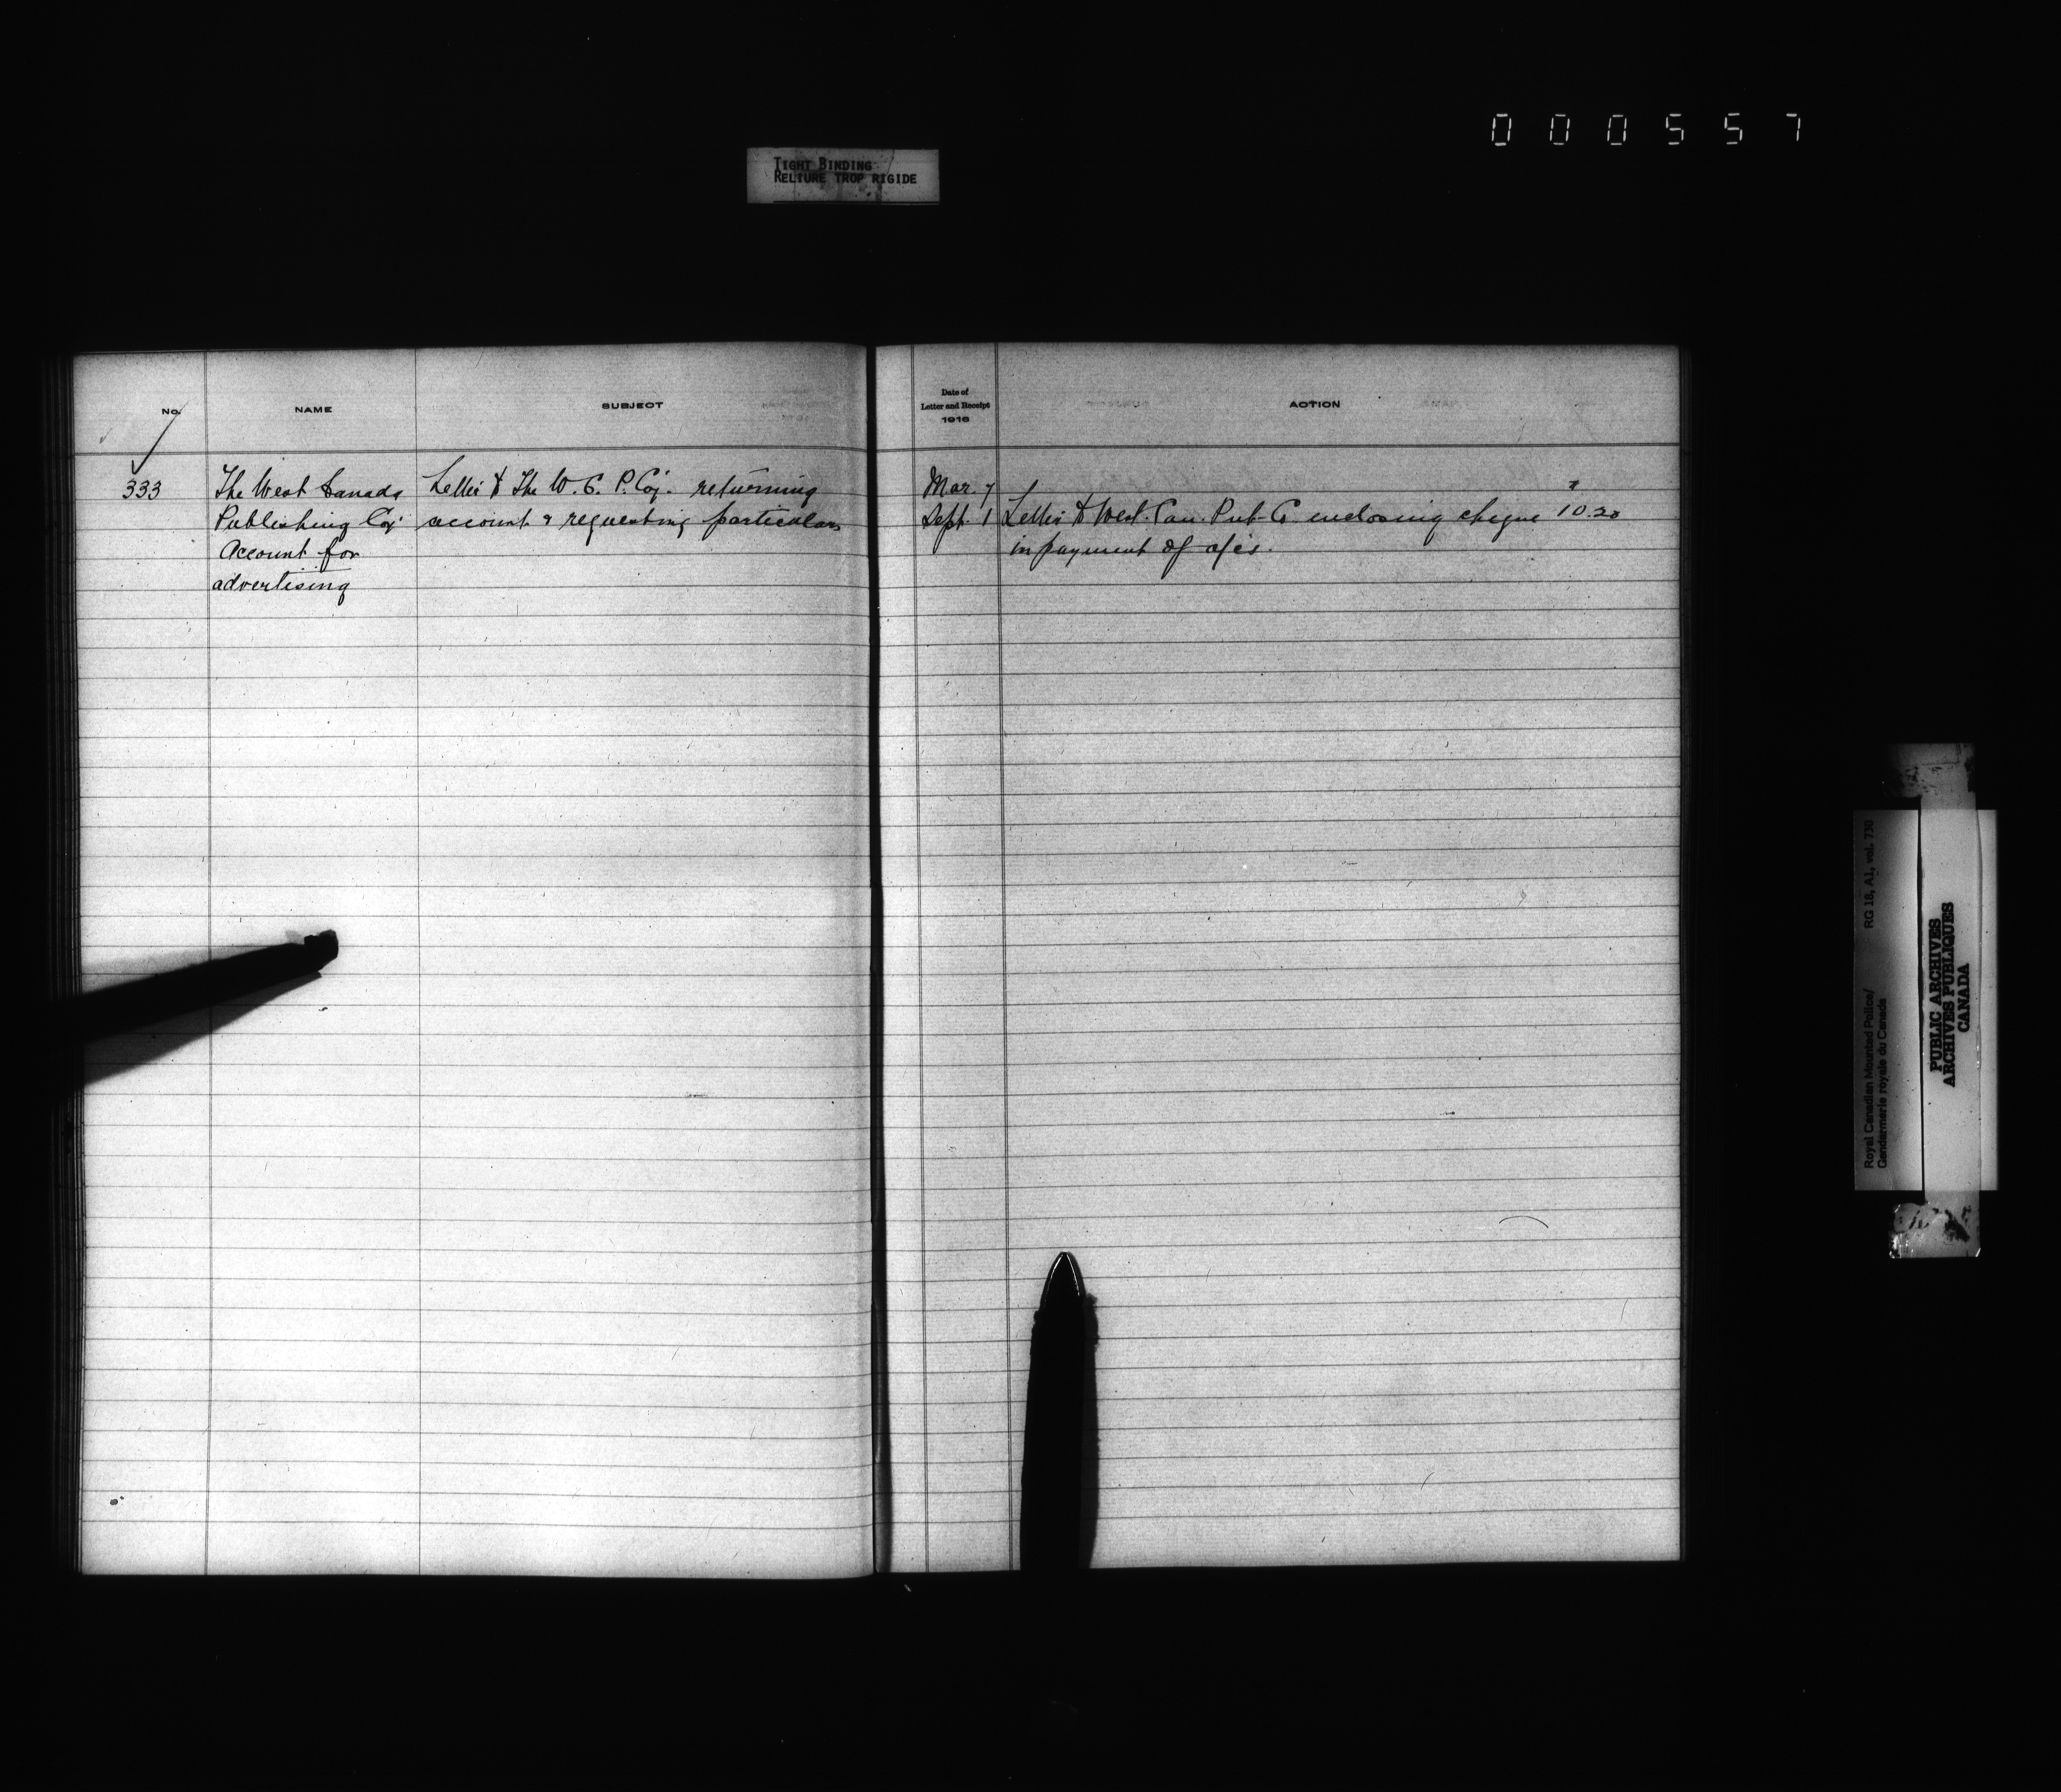 000557
TIGHT BINDING
RELIURE TROP RIGIDE
No. NAME SUBJECT
Date of
Letter and Receipt
1916
ACTION
333 The West Canada Letter to The W. C. P. Coy. returning
Publishing Coy account & requesting particulars
Account for
advertising
Mar. 7
Sept. 1 Letter to West. Can. Pub. Co. enclosing cheque 10.20
in payment of a/cs.
Royal Canadian Mounted Police/ RG 18, A1, vol. 730
Gendarmerie royale du Canada
PUBLIC ARCHIVES
ARCHIVES PUBLIQUES
CANADA